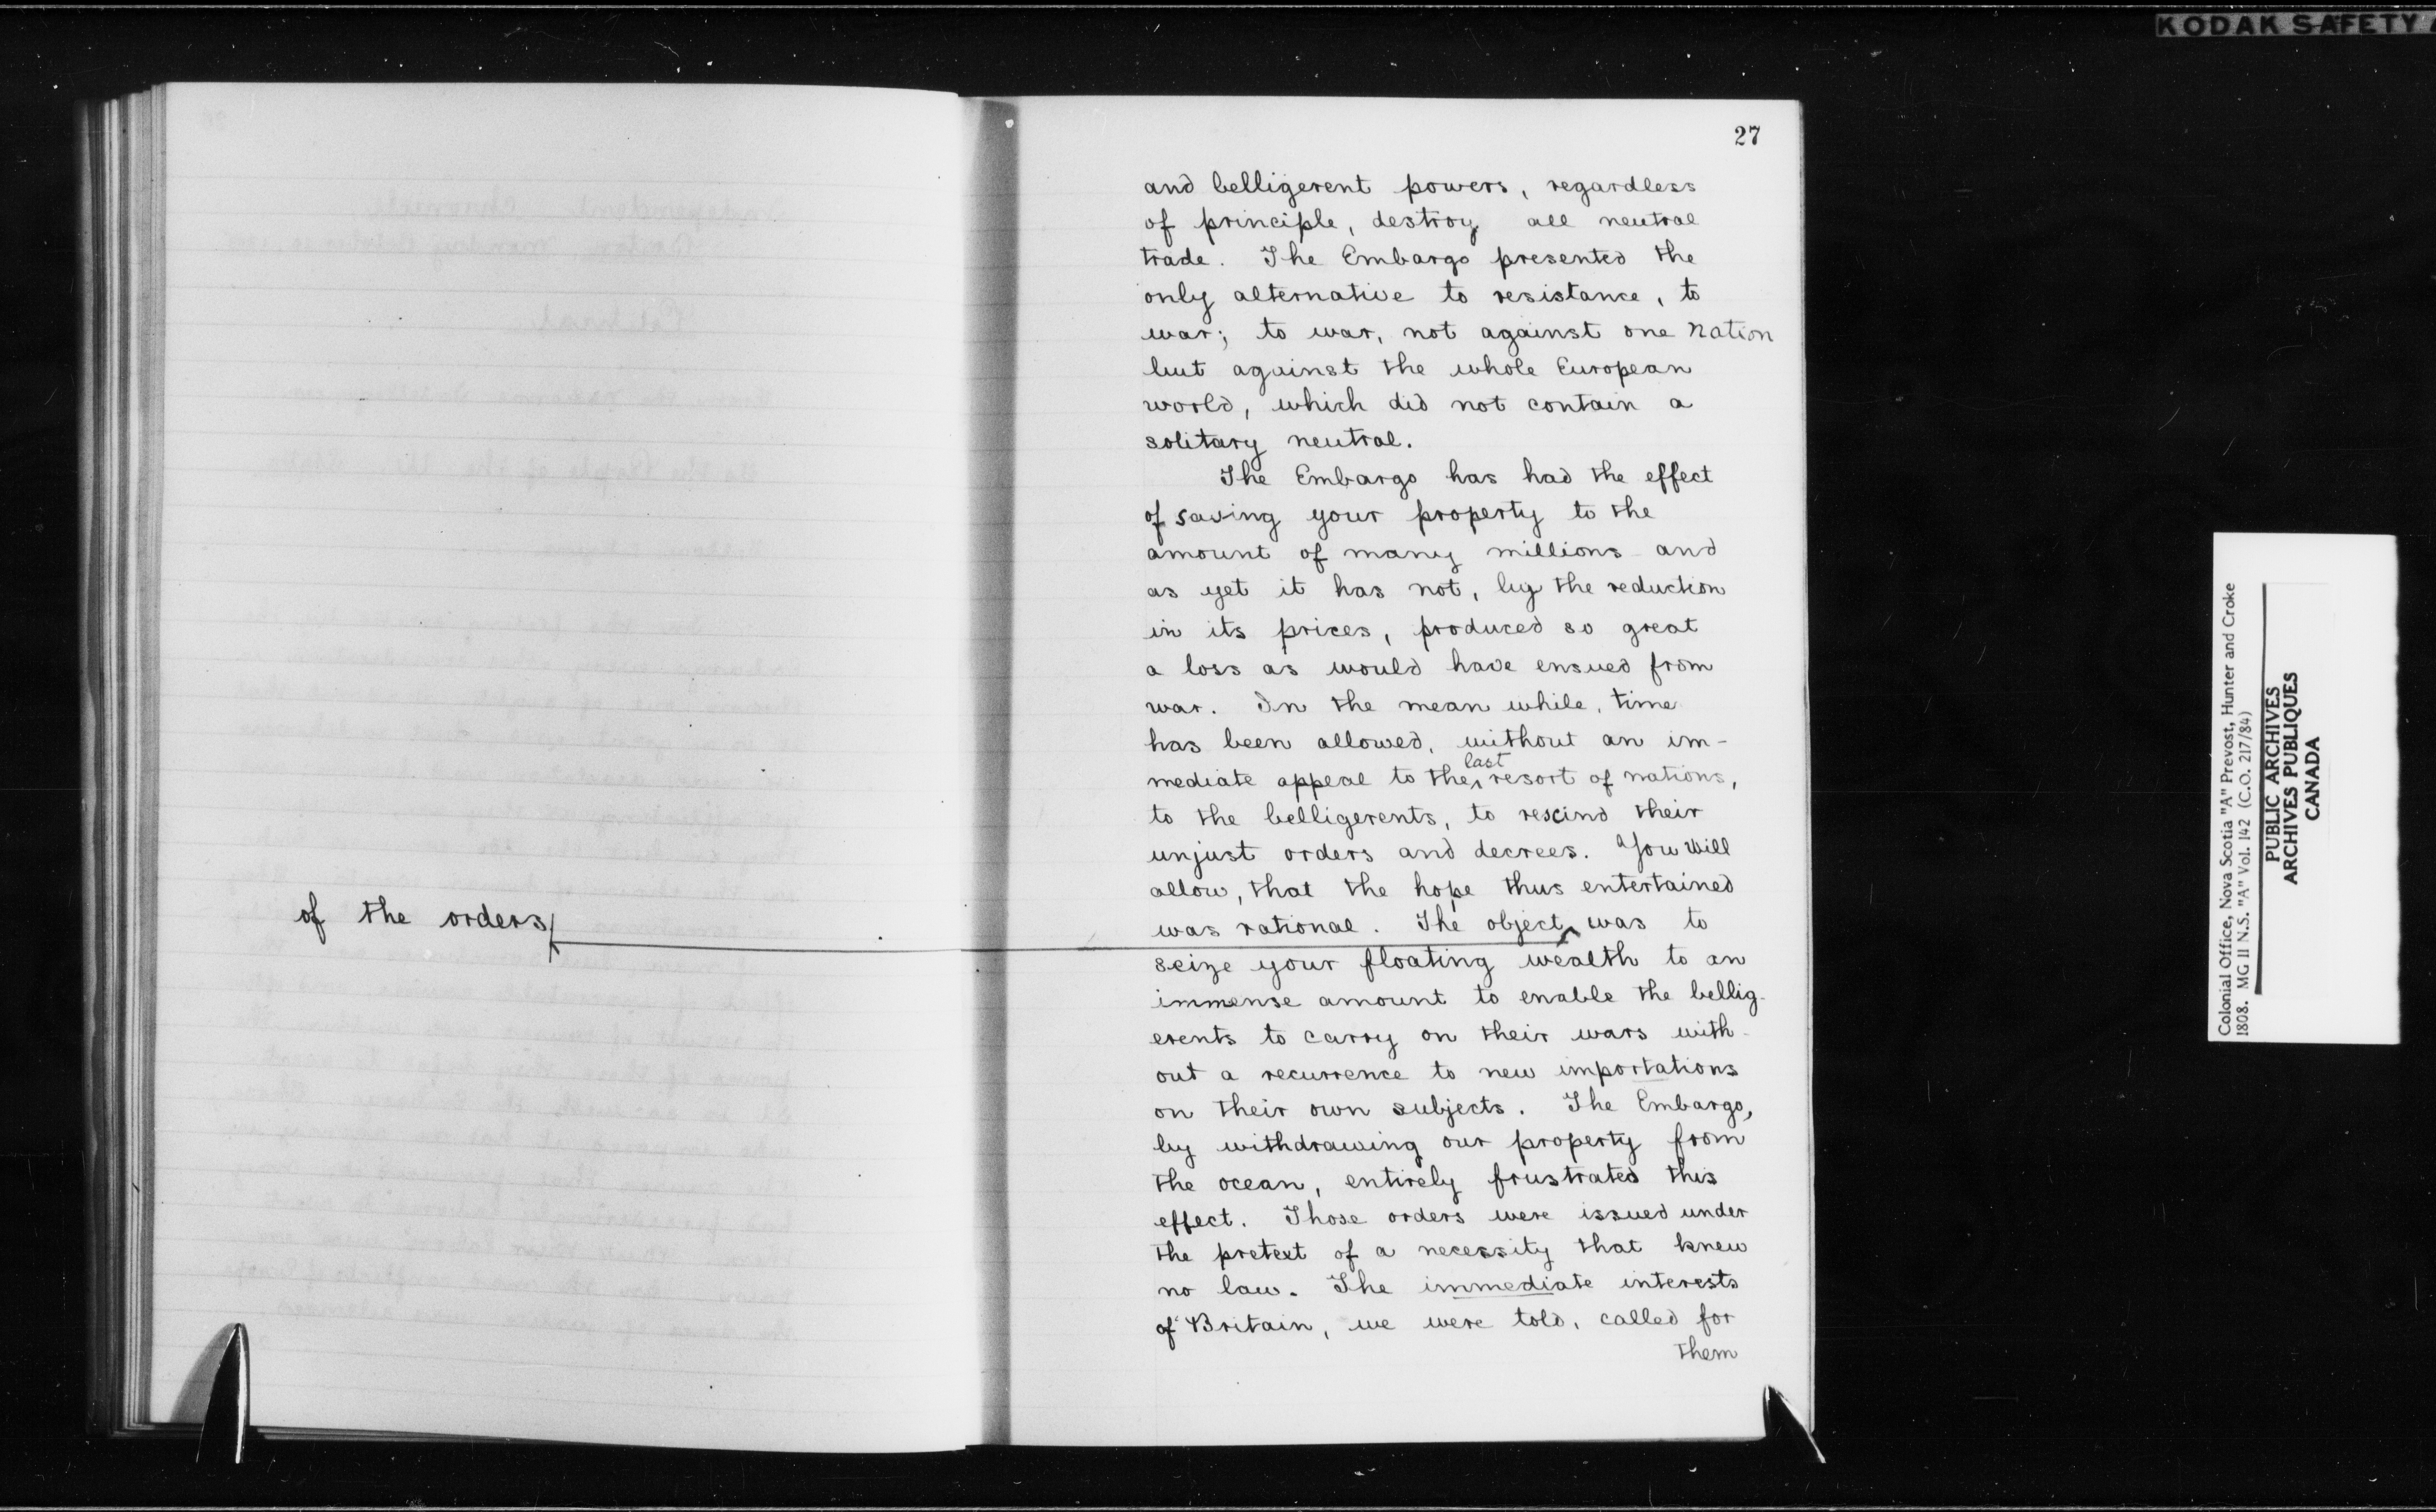 KODAK SAFETY
27
and belligerent powers, regardless
of principle, destroy all neutral
trade. The Embargo presented the
only alternative to resistance, to
war; to war, not against one nation
but against the whole European
world, which did not contain a
solitary neutral.
The Embargo has had the effect
of saving your property to the
amount of many millions and
as yet it has not, by the reduction
in its prices, produced so great
a loss as would have ensued from
war. In the mean while, time
has been allowed, without an im-
last
mediate appeal to the resort of nations,
to the belligerents, to rescind their
unjust orders and decrees. You will
allow, that the hope thus entertained
was rational. The object was to
of the orders
seize your floating wealth to an
immense amount to enable the bellig-
erents to carry on their wars with-
out a recurrence to new importations
on their own subjects. The Embargo,
by withdrawing our property from
the ocean, entirely frustrated this
effect. Those orders were issued under
the pretext of a necessity that knew
no law. The immediate interests
of Britain, we were told, called for
them
Colonial Office, Nova Scotia "A" Prevost, Hunter and Croke
1808. MG 11 N.S. "A" Vol. 142 (C.O. 217/84)
PUBLIC ARCHIVES
ARCHIVES PUBLIQUES
CANADA